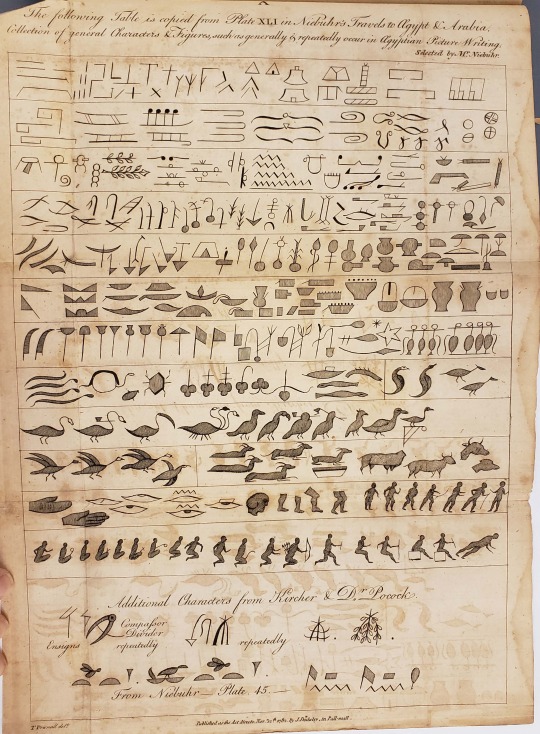 The following Table is copied from Plate XLI in Niebuhr's Travels to Ægypt & Arabia;
Collection of general Characters & Figures, such as generally & repeatedly occur in Ægyptian Picture Writing.
Selected by Mr. Niebuhr.
Additional Characters from Kircher & Dr. Pocock.
Ensigns
Compasses or Divider repeatedly
repeatedly
From Niebuhr — Plate. 45. —
T. Pownall delt.
Published as the Act directs, by J. Dodsley, in Pall-mall.